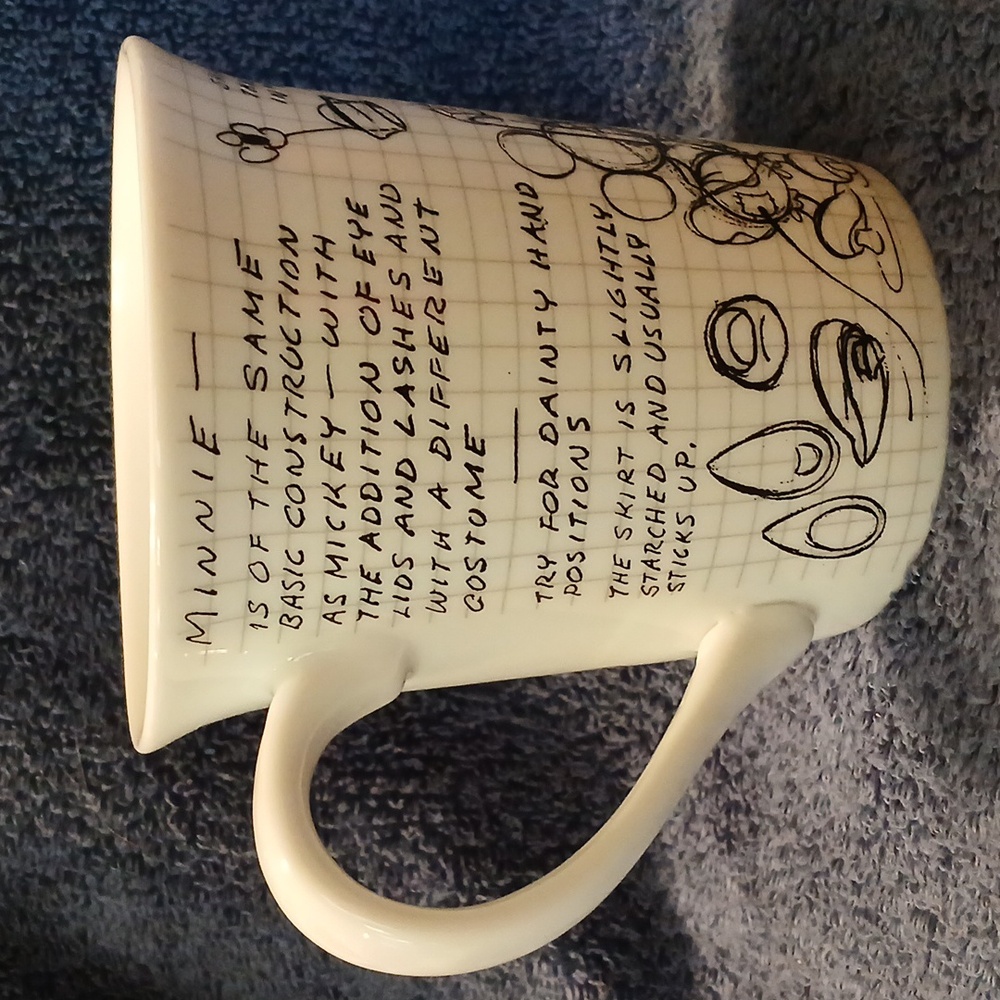 MINNIE —
IS OF THE SAME
BASIC CONSTRUCTION
AS MICKEY — WITH
THE ADDITION OF EYE
LIDS AND LASHES AND
WITH A DIFFERENT
COSTUME
TRY FOR DAINTY HAND
POSITIONS
THE SKIRT IS SLIGHTLY
STARCHED AND USUALLY
STICKS UP.